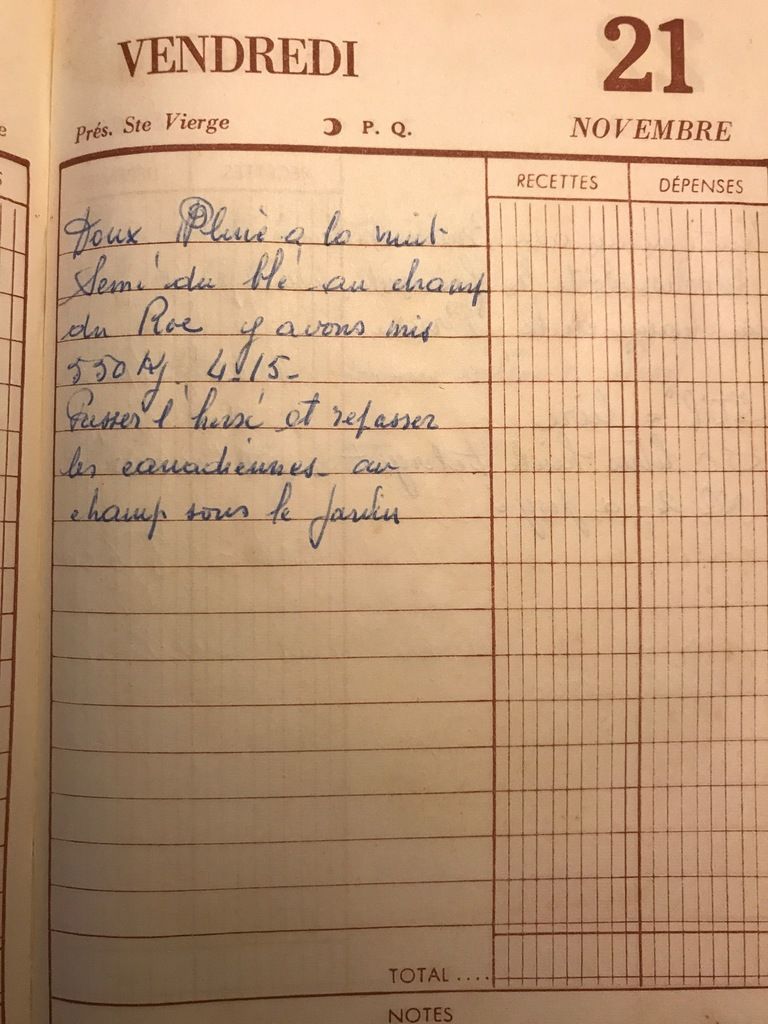 VENDREDI 21
Prés. Ste Vierge P. Q. NOVEMBRE
RECETTES DÉPENSES
Doux Pluie a la nuit
Semé du blé au champ
du Roc y avons mis
550 Kg 4-15-
Passer l'hersé et repasser
les canadiennes au
champ sous le Jardin
TOTAL ....
NOTES